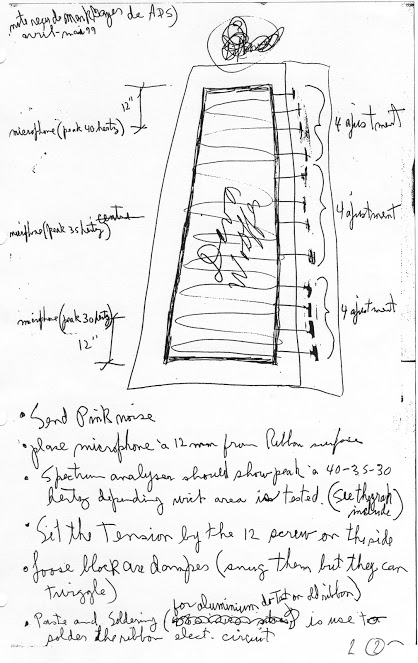 note reçus de Mark (Bages de ADS)
avril-mai 99
12"
microphone (peak 40 hertz)
4 ajustment
microphone (peak 35 hertz)
centre
4 ajustment
microphone (peak 30 hertz)
12"
4 ajustment
Woofer
• Send Pink noise
• place microphone à 12 mm from Ribbon surface
• Spectrum analyser should show peak à 40-35-30
hertz depending wich area is tested. (See the graph
include)
• Sit the Tension by the 12 screw on the side
• foose block are dampers (snug them but they can
twiggle)
(for aluminium old ribbon)
• Paste and Soldering is use to
solder the ribbon elect. circuit
2